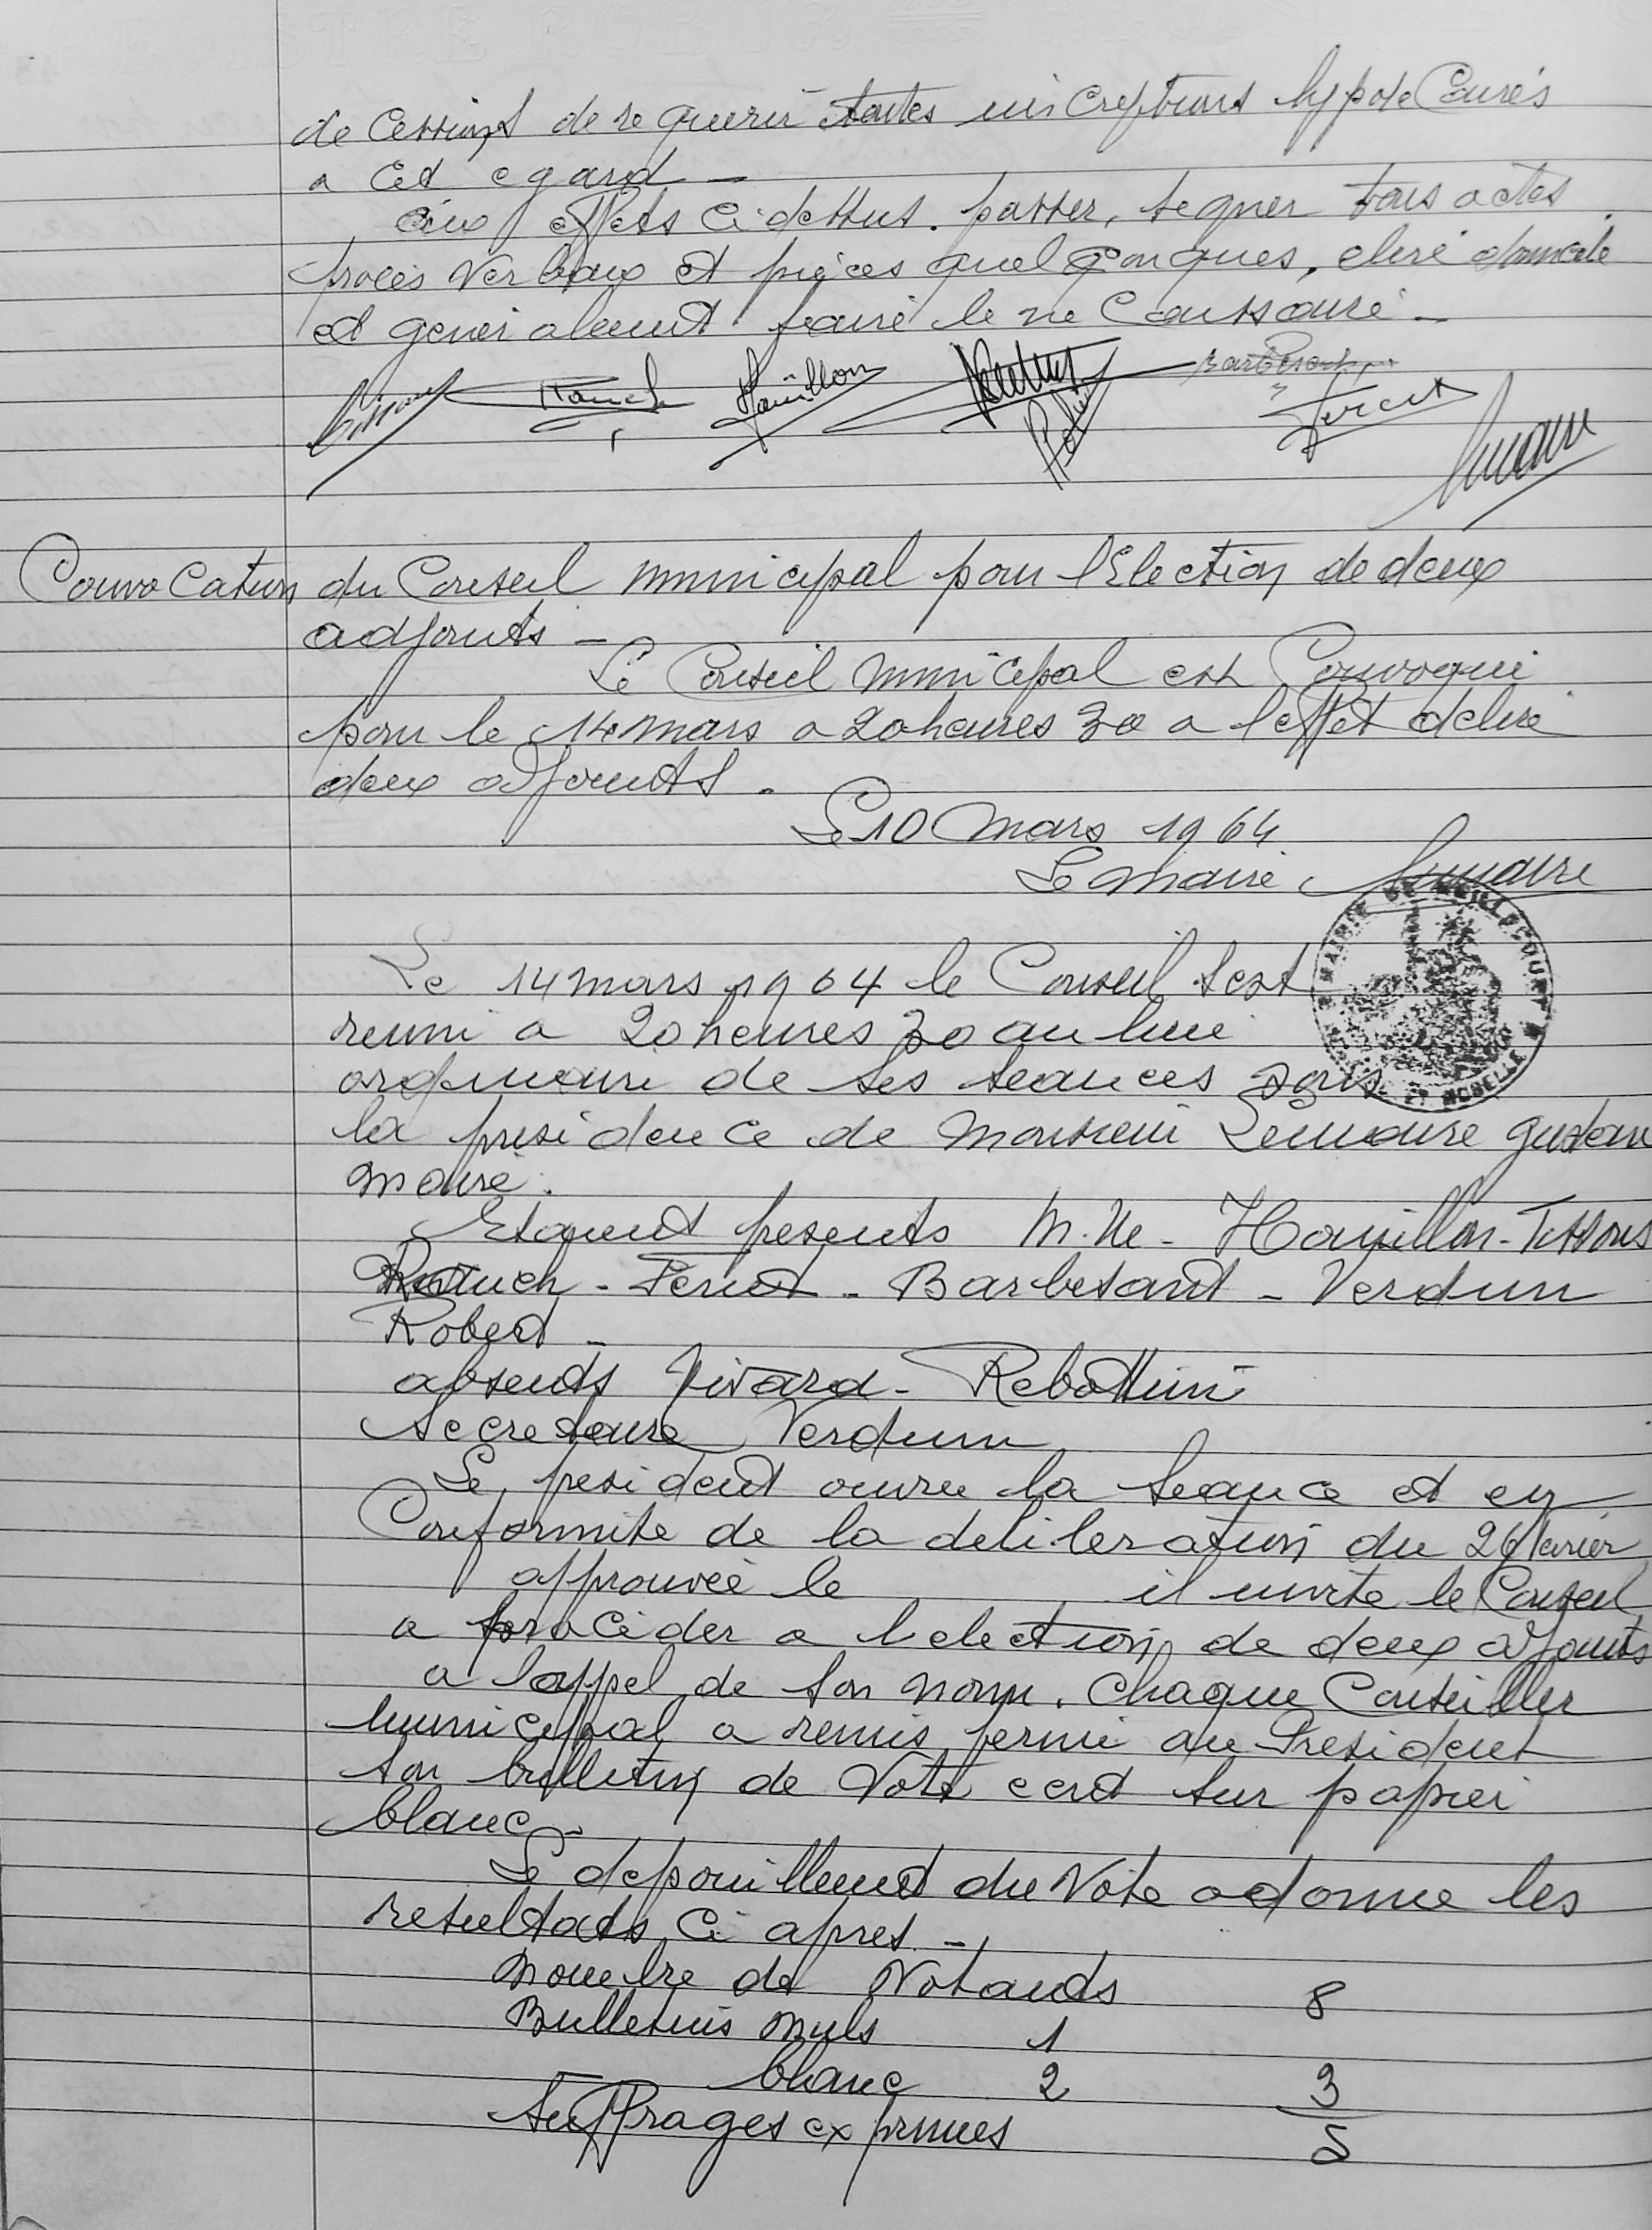 de cessions de requerir toutes inscriptions hypotecaires
a cet egard _
aux effets ci dessus. passer, segner tous actes
procès verbaux et pièces quelconques, eliré domicile
et generalement faire le ne cessaire _
Tanch Houillon Barbesant
Robert Feriet
Lemaire
Convocation du Conseil municipal pour l'Election de deux
adjoints _
Le Conseil municipal est Convoqui
pour le 14 mars a 20 heures 30 a l'effet d'elire
deux adjoints.
Le 10 mars 1964
Le maire Lemaire
MAIRIE DE ET MOSELLE
Le 14 mars 1964 le Conseil s'est
reuni a 20 heures 30 au lieu
ordinaire de ses seances sous
la presidence de monsieur Lemaire gustave
maire.
Etaient presents M. Me - Houillon - Tissons
- Feriet - Barbesant - Verdun
Robert _
absents Vivard - Rebottini
Secretaire Verdun
Le president ouvre la seance et en
Conformite de la deliberation du 26 fevrier
approuvée le il invite le Conseil
a proceder a l'election de deux adjoints
a l'appel de son nom. Chaque Conseiller
municipal a remis fermé au President
son bulletin de Vote ecrit sur papier
blanc -
Le depouillement du Vote a donne les
resultats ci apres -
Nombre de Votants 8
Bulletins nuls 1
blanc 2 3
Suffrages exprimes 5